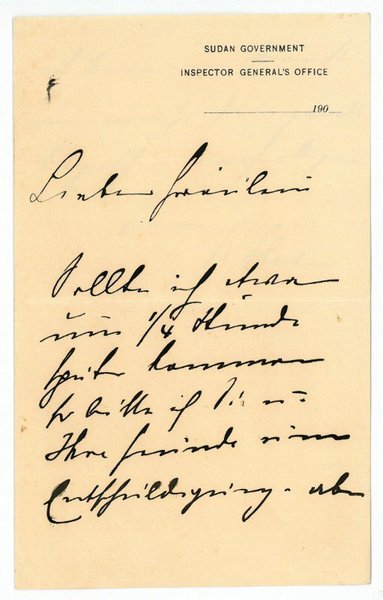 SUDAN GOVERNMENT
INSPECTOR GENERAL'S OFFICE
190
Liebes Fräulein
Sollte ich etwa
um 1/4 Stunde
später kommen
so bitte ich Sie u.
Ihre Freunde um
Entschuldigung - aber